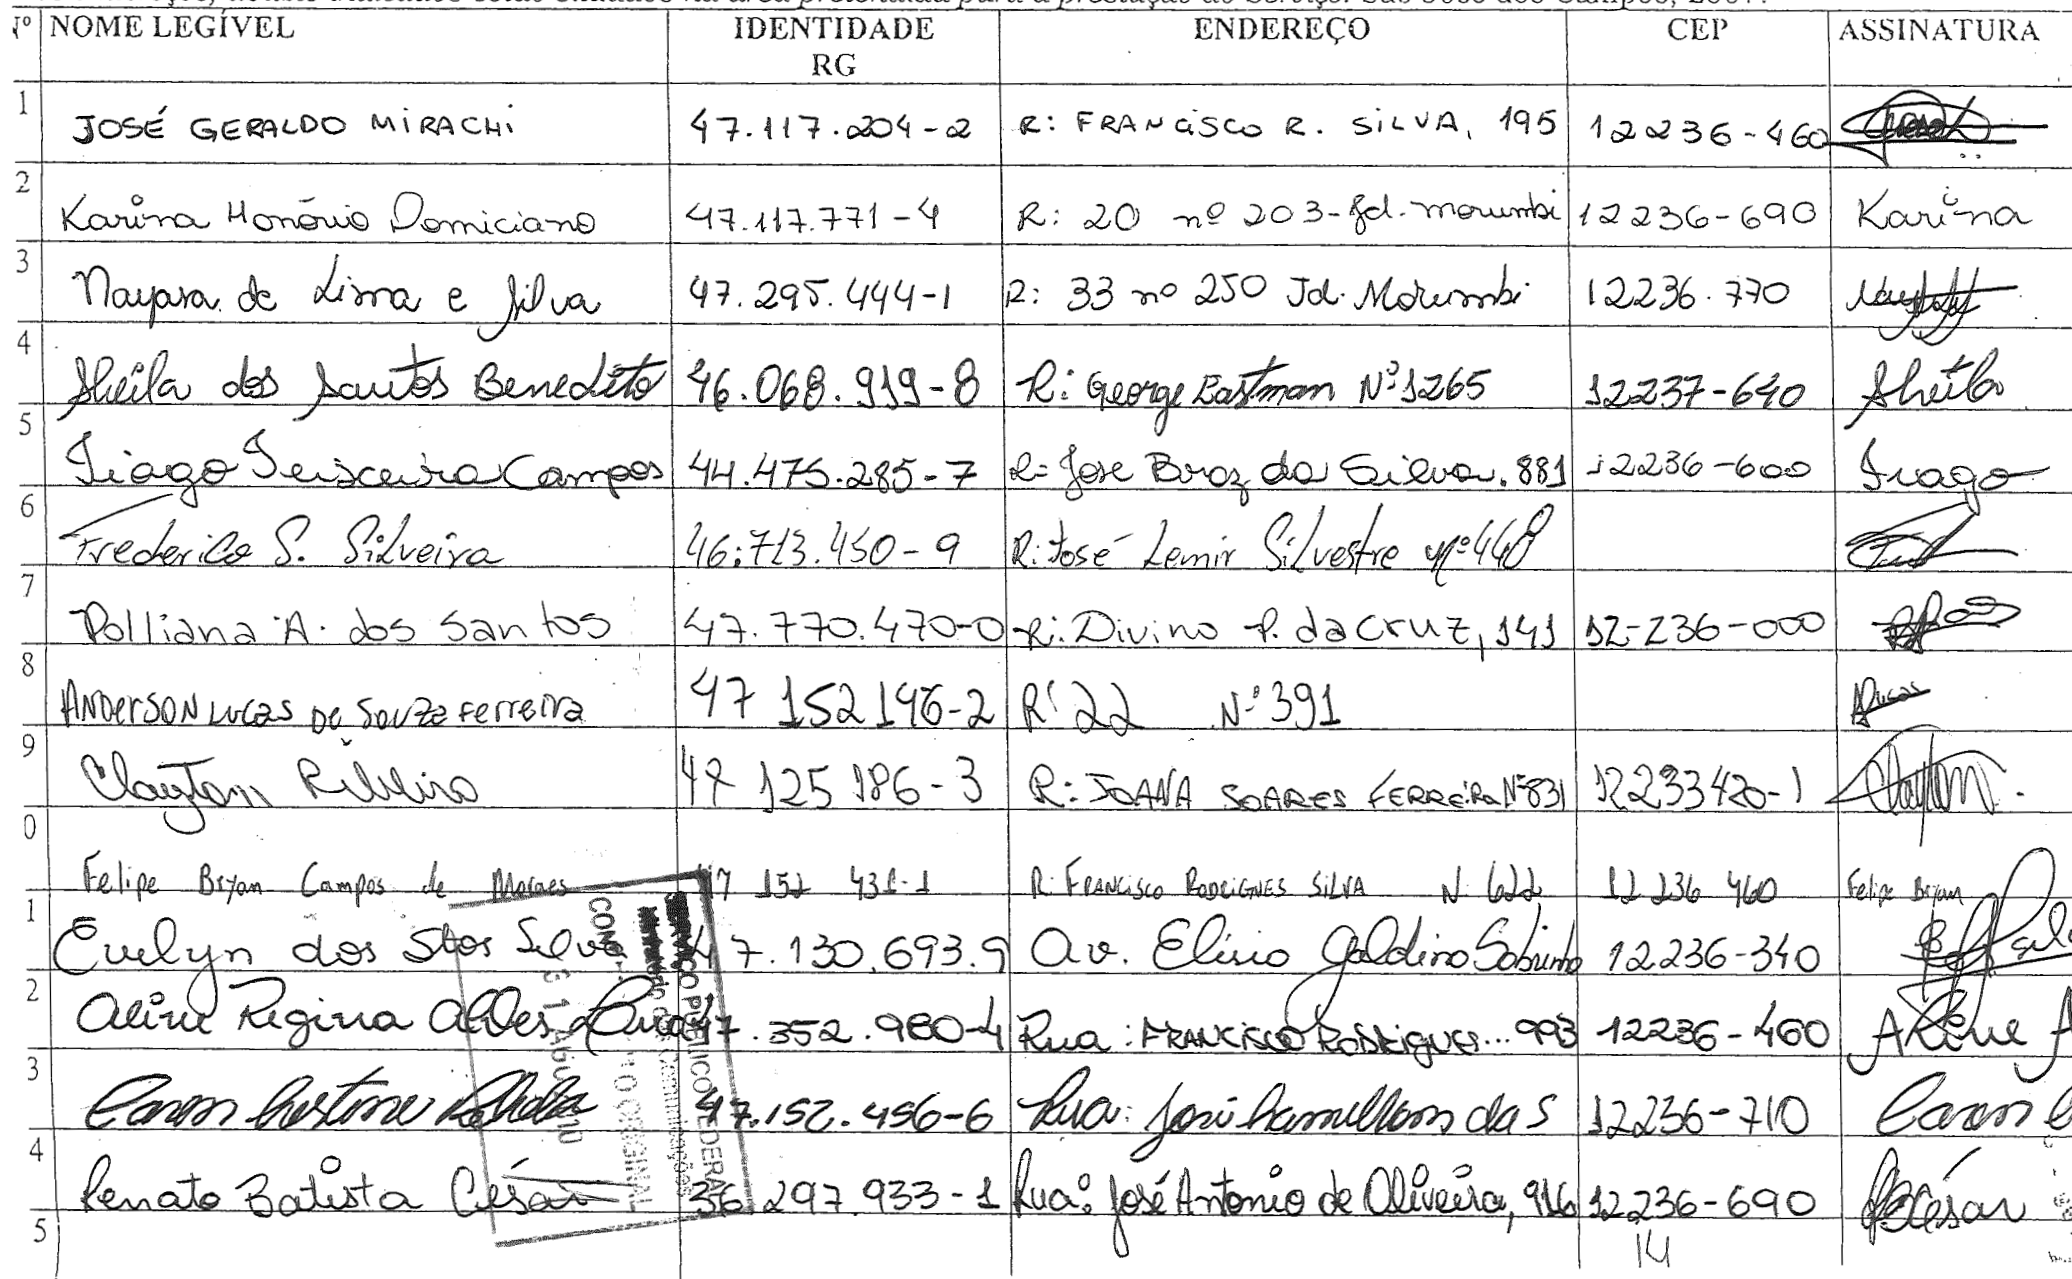 Nº NOME LEGÍVEL IDENTIDADE RG ENDEREÇO CEP ASSINATURA
1 JOSÉ GERALDO MIRACHI 47.117.204-2 R: FRANCISCO R. SILVA, 195 12236-460
2 Karina Honório Domiciano 47.117.771-4 R: 20 nº 203-Jd. Morumbi 12236-690 Karina
3 Nayara de Lima e Silva 47.295.444-1 R: 33 nº 250 Jd. Morumbi 12236.770
4 Sheila dos Santos Benedito 46.068.919-8 R: George Eastman Nº 1265 12237-640 Sheila
5 Tiago Teixceira Campos 44.475.285-7 R: Jose Braz da Silva. 881 12236-600 Tiago
6 Frederico S. Silveira 46.713.450-9 R: José Lemir Silvestre nº 448
7 Polliana A. dos Santos 47.770.470-0 R: Divino P. da Cruz, 141 12-236-000
8 ANDERSON LUCAS DE SOUZA FERREIRA 47 152 146-2 R: 22 Nº 391
9 Claytom Ribeiro 47 125 186-3 R: JOANA SOARES FERREIRA Nº 831 12233420-1 Claytom
0 Felipe Bryan Campos de Moraes 47 152 431-1 R: FRANCISCO RODRIGNES SILVA N 622 12 236 460 Felipe Bryan
1 Evelyn dos Stos Silva 47.130.693.9 Av. Elisio Galdino Sobrinho 12.236-340
2 Aline Regina Alves 47.352.980-4 Rua: FRANCISCO RODRIGUES... 993 12236-460 Aline A
3 47.152.456-6 Rua: José da S 12236-710
4 Renato Batista César 36.297.933-1 Rua: José Antonio de Oliveira, 916 12.236-690 César
5 14
SERVIÇO PÚBLICO FEDERAL
Comunicações
O ORIGINAL